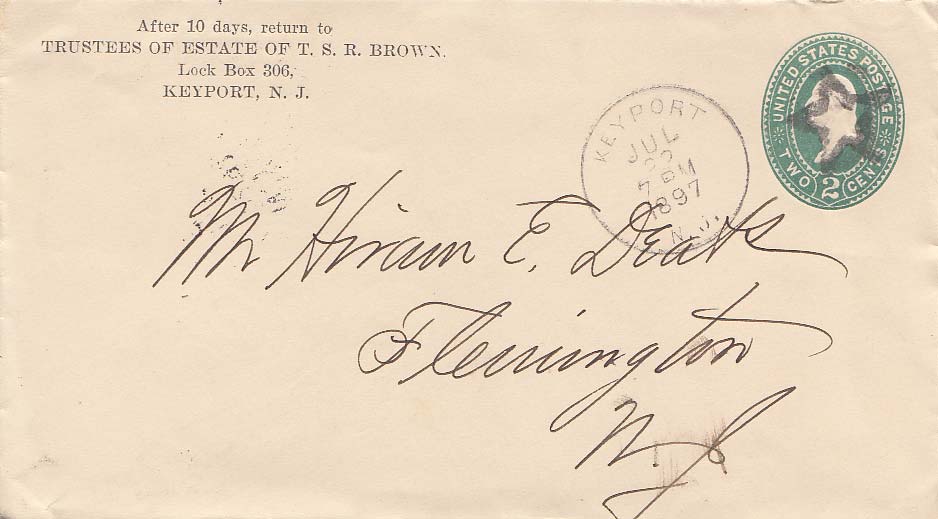 After 10 days, return to
TRUSTEES OF ESTATE OF T. S. R. BROWN.
Lock Box 306,
KEYPORT, N. J.
UNITED STATES POSTAGE
TWO 2 CENTS
KEYPORT
JUL
7 PM
1897
N.J.
Mr Hiram E. Deats
Flemington
N. J.